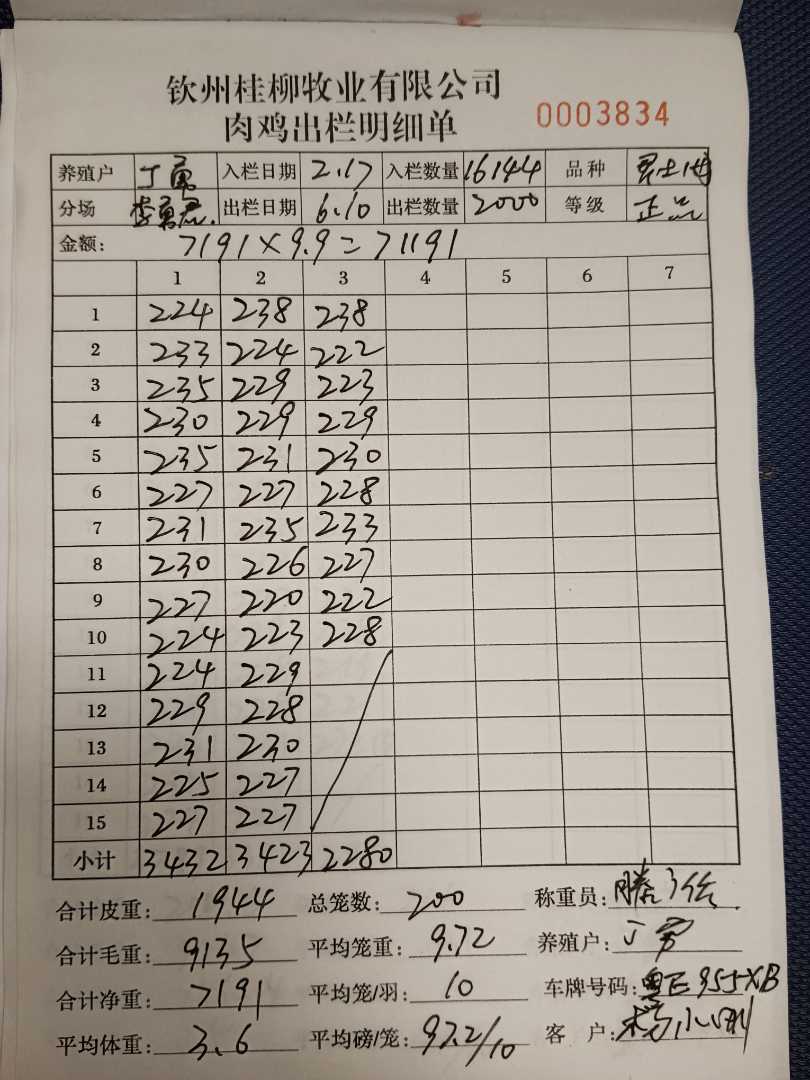 钦州桂柳牧业有限公司
肉鸡出栏明细单 0003834
养殖户 丁寓 入栏日期 2.17 入栏数量 16144 品种
分场 李勇君. 出栏日期 6.10 出栏数量 2000 等级 正品
金额: 7191×9.9=71191
1 2 3 4 5 6 7
1 224 238 238
2 233 224 222
3 235 229 223
4 230 229 229
5 235 231 230
6 227 227 228
7 231 235 233
8 230 226 227
9 227 220 222
10 224 223 228
11 224 229
12 229 228
13 231 230
14 225 227
15 227 227
小计 3432 3423 2280
合计皮重: 1944 总笼数: 200 称重员:
合计毛重: 9135 平均笼重: 9.72 养殖户:
合计净重: 7191 平均笼/羽: 10 车牌号码: 955XB
平均体重: 3.6 平均磅/笼: 97.2/10 客 户: 杨小刚